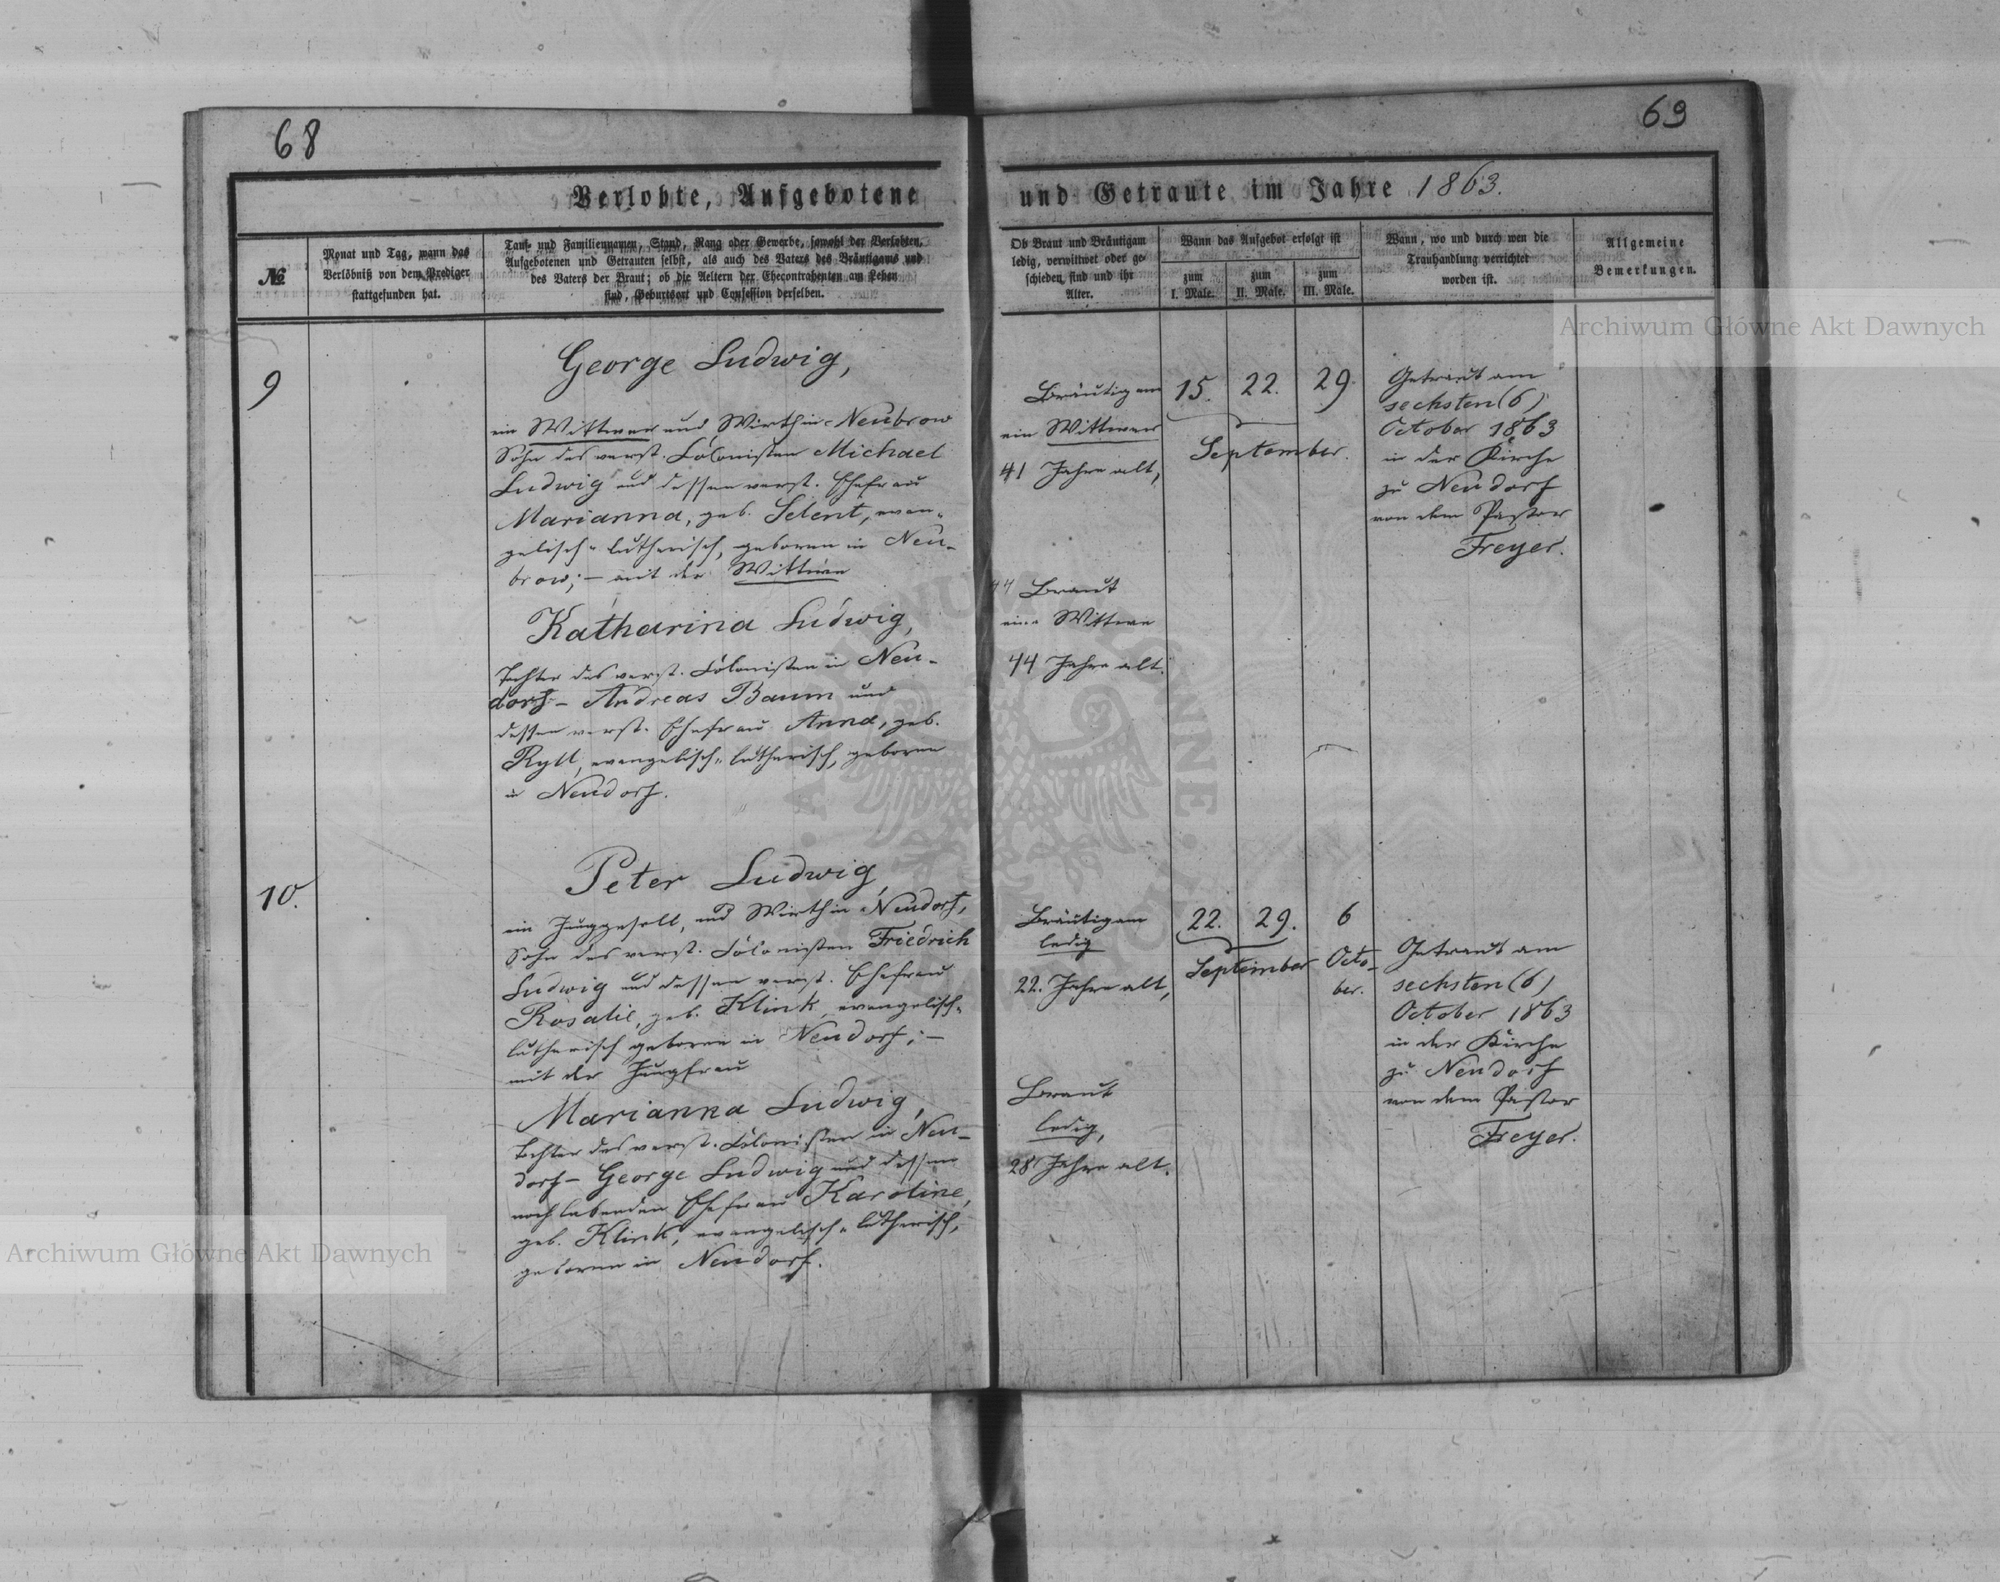 68
69
Verlobte, Aufgebotene
und Getraute im Jahre 1863.
№
Monat und Tag, wann das
Verlöbniß von dem Prediger
stattgefunden hat.
Tauf- und Familiennamen, Stand, Rang oder Gewerbe, sowohl der Verlobten,
Aufgebotenen und Getrauten selbst, als auch des Vaters des Bräutigams und
des Vaters der Braut; ob die Aeltern der Ehecontrahenten am Leben
sind, Geburtsort und Confession derselben.
Ob Braut und Bräutigam
ledig, verwittwet oder ge-
schieden sind und ihr
Alter.
Wann das Aufgebot erfolgt ist
zum
I. Male.
zum
II. Male.
zum
III. Male.
Wann, wo und durch wen die
Trauhandlung verrichtet
worden ist.
Allgemeine
Bemerkungen.
9
George Ludwig,
ein Wittwer und Wirth in Neubrow
Sohn des verst. Colonisten Michael
Ludwig und dessen verst. Ehefrau
Marianna, geb. Selent, evan-
gelisch-lutherisch, geboren in Neu-
brow; — mit der Wittwe
Katharina Ludwig,
Tochter des verst. Colonisten in Neu-
dorf - Andreas Baum und
dessen verst. Ehefrau Anna, geb.
Rytt, evangelisch-lutherisch, geboren
in Neudorf.
Bräutigam
ein Wittwer
41 Jahre alt,
Braut
eine Wittwe
44 Jahre alt.
15. 22. 29.
September.
Getraut am
sechsten (6)
October 1863
in der Kirche
zu Neudorf
von dem Pastor
Freyer.
10.
Peter Ludwig,
ein Junggesell, und Wirth in Neudorf,
Sohn des verst. Colonisten Friedrich
Ludwig und dessen verst. Ehefrau
Rosalie, geb. Klink, evangelisch-
lutherisch geboren in Neudorf; —
mit der Jungfrau
Marianna Ludwig,
Tochter des verst. Colonisten in Neu-
dorf - George Ludwig und dessen
noch lebenden Ehefrau Karoline,
geb. Klink, evangelisch-lutherisch,
geboren in Neudorf.
Bräutigam
ledig
22. Jahre alt,
Braut
ledig,
28 Jahre alt.
22. 29. 6
September Octo-
ber.
Getraut am
sechsten (6)
October 1863
in der Kirche
zu Neudorf
von dem Pastor
Freyer.
Archiwum Główne Akt Dawnych
Archiwum Główne Akt Dawnych